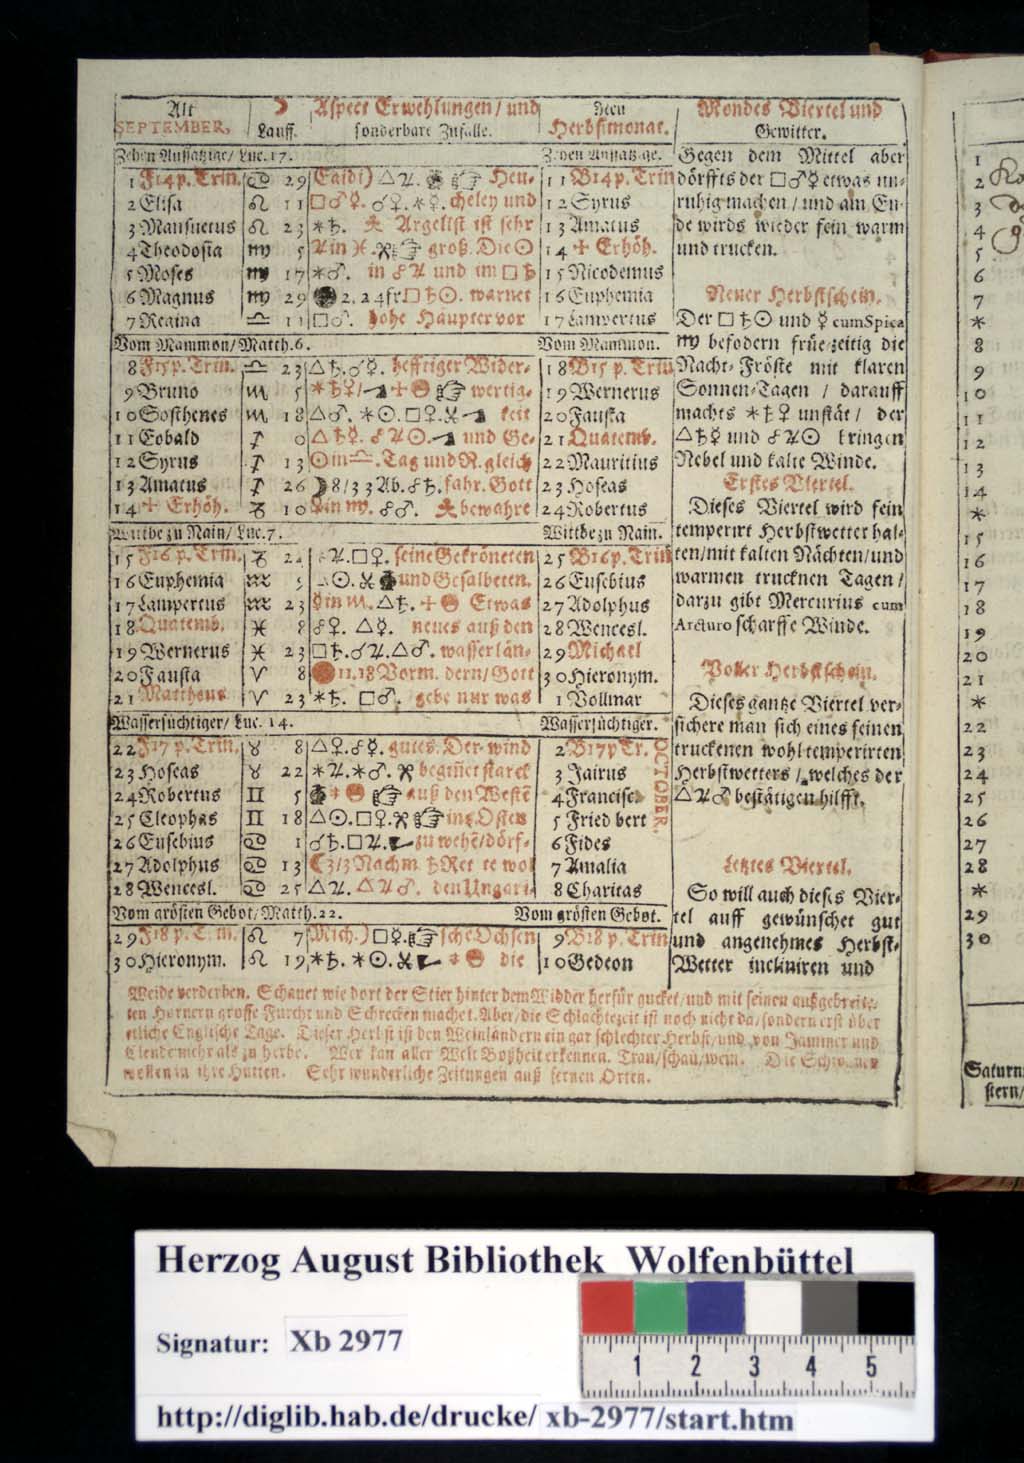 Alt ☽ Aspect Erwehlungen/ und Neu Mondes Viertel und
SEPTEMBER, Lauff. sonderbare Zufälle. Herbstmonat. Gewitter.
Zehen Aussätzige/ Luc. 17. Zehen Aussätzige.
1 F14 p. Trin. ♋ 29 △♃. ☞ Heu- 11 B14 p. Trin
2 Elisa ♌ 11 □♂☿. ♂♀. ⚹♀. cheley und 12 Syrus
3 Mansuetus ♌ 23 ⚹♄. Arglist ist sehr 13 Amatus
4 Theodosia ♍ 5 ♃ in ♓. ☞ groß. Die ☉ 14 ✢ Erhöh.
5 Moses ♍ 17 ⚹♂. in ☍♃ und im □♄ 15 Nicodemus
6 Magnus ♍ 29 ● 2, 24 fr. □♄☉. warnet 16 Euphemia
7 Regina ♎ 11 □♂. hohe Häupter vor 17 Lampertus
Vom Mammon/ Matth. 6. Vom Mammon.
8 F15 p. Trin. ♎ 23 △♄. ♂☿. hefftiger Wider- 18 B15 p. Trin
9 Bruno ♏ 5 ⚹♄♀/ ☞ wertig- 19 Wernerus
10 Sosthenes ♏ 18 △♂. ⚹☉. □♀. keit 20 Fausta
11 Eobald ♐ 0 △♄☿. ☍♃☉. und Ge- 21 Quatemb.
12 Syrus ♐ 13 ☉ in ♎. Tag und N. gleich 22 Mauritius
13 Amatus ♐ 26 ☽ 8/33 Ab. ☍♄. fahr. Gott 23 Hoseas
14 ✢ Erhöh. ♑ 10 in ♍. ☍♂. bewahre 24 Robertus
Wittbe zu Nain/ Luc. 7. Wittbe zu Nain.
15 F16 p. Trin. ♑ ♃. □♀. seine Gekröneten 25 B16 p. Trin
16 Euphemia ♒ 9 ☉. und Gesalbeten. 26 Eusebius
17 Lampertus ♒ 23 ☿ in ♏. △♄. Etwas 27 Adolphus
18 Quatemb. ♓ 8 ☍♀. △☿. neues auß den 28 Wencesl.
19 Wernerus ♓ 23 □♄. ♂♃. △♂. wasser län- 29 Michael
20 Fausta ♈ 8 11.18 Vorm. dern/ Gott 30 Hieronym.
21 Mattheus ♈ 23 ⚹♄. □♂. gebe nur was 1 Vollmar
Wassersüchtiger/ Luc. 14. Wassersüchtiger.
22 F17 p. Trin. ♉ 8 △♀. ☍☿. gutes. Der wind 2 B17 p Tr. OCTOBER.
23 Hoseas ♉ 22 ⚹♃. ⚹♂. beginet starck 3 Jairus
24 Robertus ♊ 5 ☞ auß den Westē 4 Francisc.
25 Cleophas ♊ 18 △☉. □♀. ☞ ins Osten 5 Friedbert
26 Eusebius ♋ 1 ♂♄. □♃. zu wehē/ dörf- 6 Fides
27 Adolphus ♋ 13 ☾ 3/3 Nachm. te wol 7 Amalia
28 Wencesl. ♋ 25 △♃. △♃♂. den Ungari- 8 Charitas
Vom grösten Gebot/ Matth. 22. Vom grösten Gebot.
29 F18 p. T. in. ♌ 7 Mich.) □☿. ☞ sche Ochsen 9 B18 p. Trin
30 Hieronym. ♌ 19 ⚹♄. ⚹☉. die 10 Gedeon
Gegen dem Mittel aber
dörffts der □♂☿ etwas un-
ruhig machen / und am En-
de wirds wieder fein warm
und trucken.
Neuer Herbstschein.
Der □♄☉ und ☿ cum Spica
♍ befodern früezeitig die
Nacht-Fröste mit klaren
Sonnen-Tagen / darauff
machts ⚹♄♀ unstät/ der
△♄☿ und ☍♃☉ bringen
Nebel und kalte Winde.
Erstes Viertel.
Dieses Viertel wird fein
temperirt Herbstwetter hal-
ten/ mit kalten Nächten/ und
warmen trucknen Tagen/
darzu gibt Mercurius cum
Arcturo scharffe Winde.
Voller Herbstschein.
Dieses gantze Viertel ver-
sichere man sich eines feinen
truckenen wohltemperirten
Herbstwetters / welches der
△♃♂ bestätigen hilfft.
Letztes Viertel.
So will auch dieses Vier-
tel auff gewünschet gut
und angenehmes Herbst-
Wetter incliniren und
Weide verderben. Schauet wie dort der Stier hinter dem Widder herfür gucket/ und mit seinen außgebreite-
ten Hörnern grosse Furcht und Schrecken machet. Aber/ die Schlachtezeit ist noch nicht da/ sondern erst über
etliche Englische Tage. Dieser Herbst ist den Weinländern ein gar schlechter Herbst/ und von Jammer und
Elende mehr als zu herbe. Wer kan aller Welt Boßheit erkennen. Trau/ schau/ wem. Die
in ihre Hütten. Sehr wunderliche Zeitungen auß fernen Orten.
1
2
3
4
5
6
7
*
8
9
10
11
12
13
14
*
15
16
17
18
19
20
21
*
22
23
24
25
26
27
28
*
29
30
Saturn
stern/
Herzog August Bibliothek Wolfenbüttel
Signatur: Xb 2977
1 2 3 4 5
http://diglib.hab.de/drucke/ xb-2977/start.htm